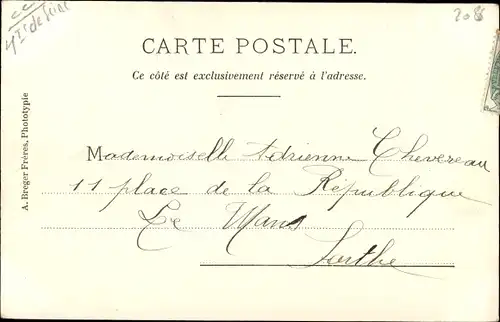 208
CARTE POSTALE.
Ce côté est exclusivement réservé à l'adresse.
A. Breger Frères, Phototypie
Mademoiselle Adrienne Chevereau
11 place de la République
Le Mans
Sarthe